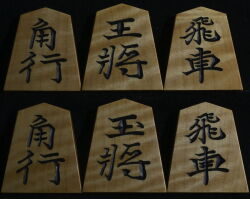 角行 王將 飛車
角行 玉將 飛車